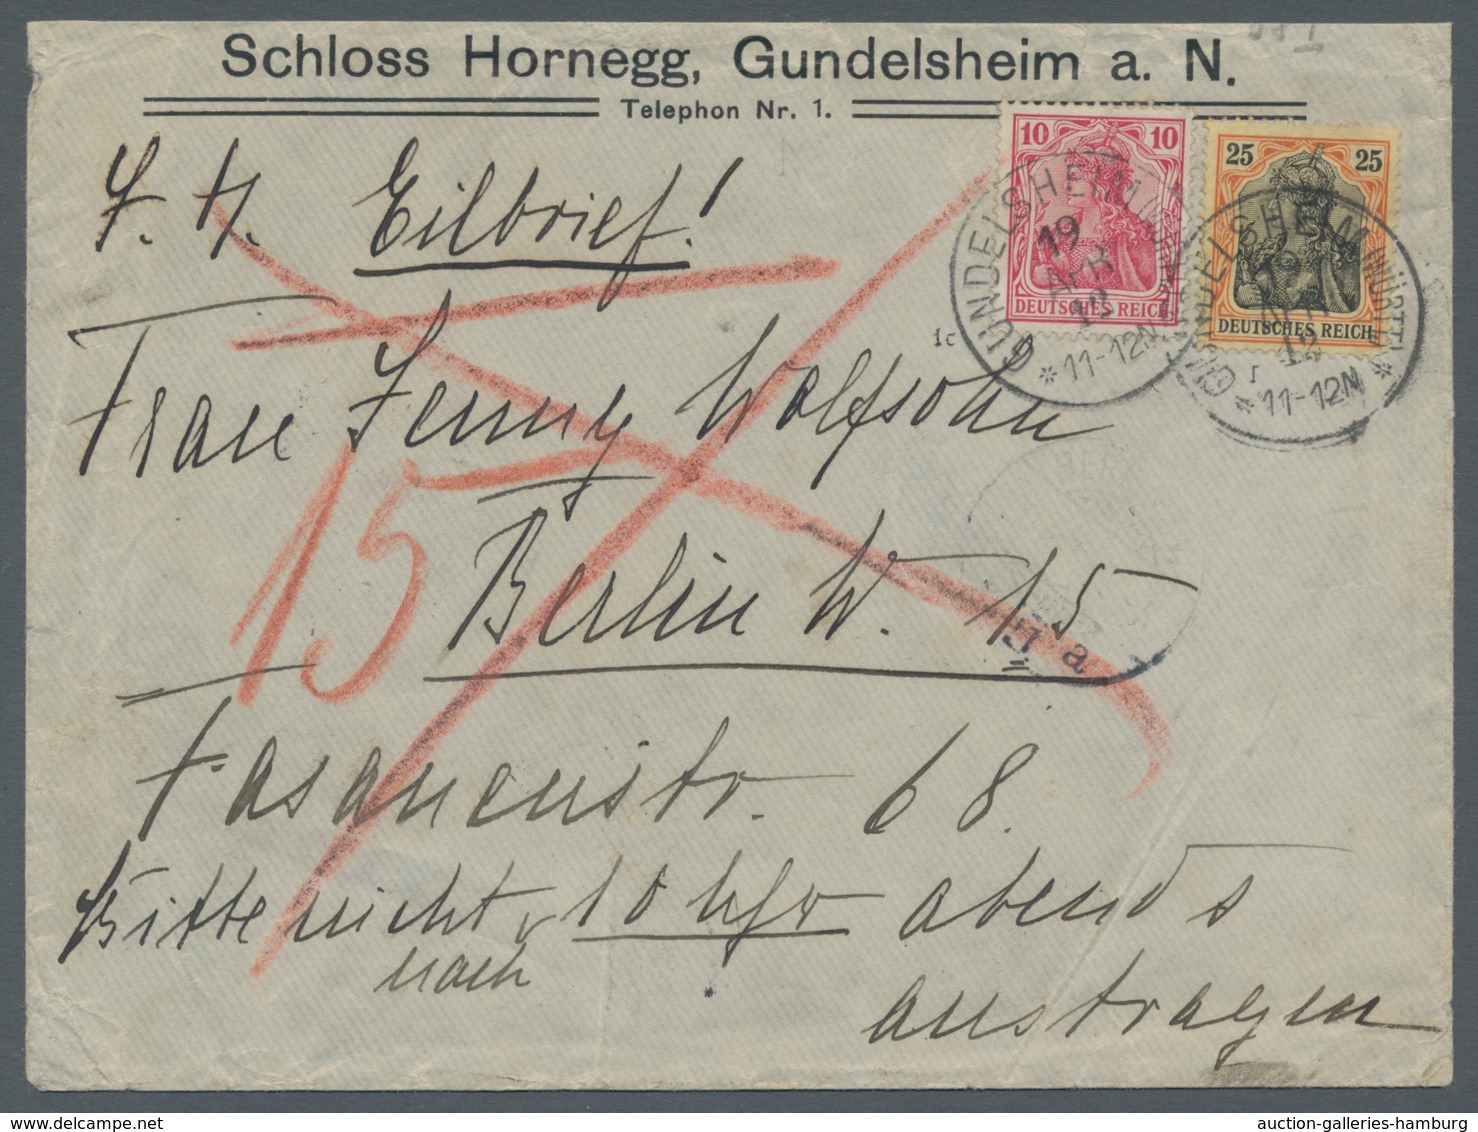 Schloss Hornegg, Gundelsheim a. N.
Telephon Nr. 1.
Eilbrief!
10 10
DEUTSCHES REICH
25 25
DEUTSCHES REICH
GUNDELSHEIM
19
APR
12
* 11-12N
GUNDELSHEIM (WÜRTT)
APR
12
* 11-12N
Frau Jenny Wolfsohn
15
Berlin W. 15
a
Fasanenstr. 68.
Bitte nicht nach 10 Uhr abends
austragen
auction-galleries-hamburg